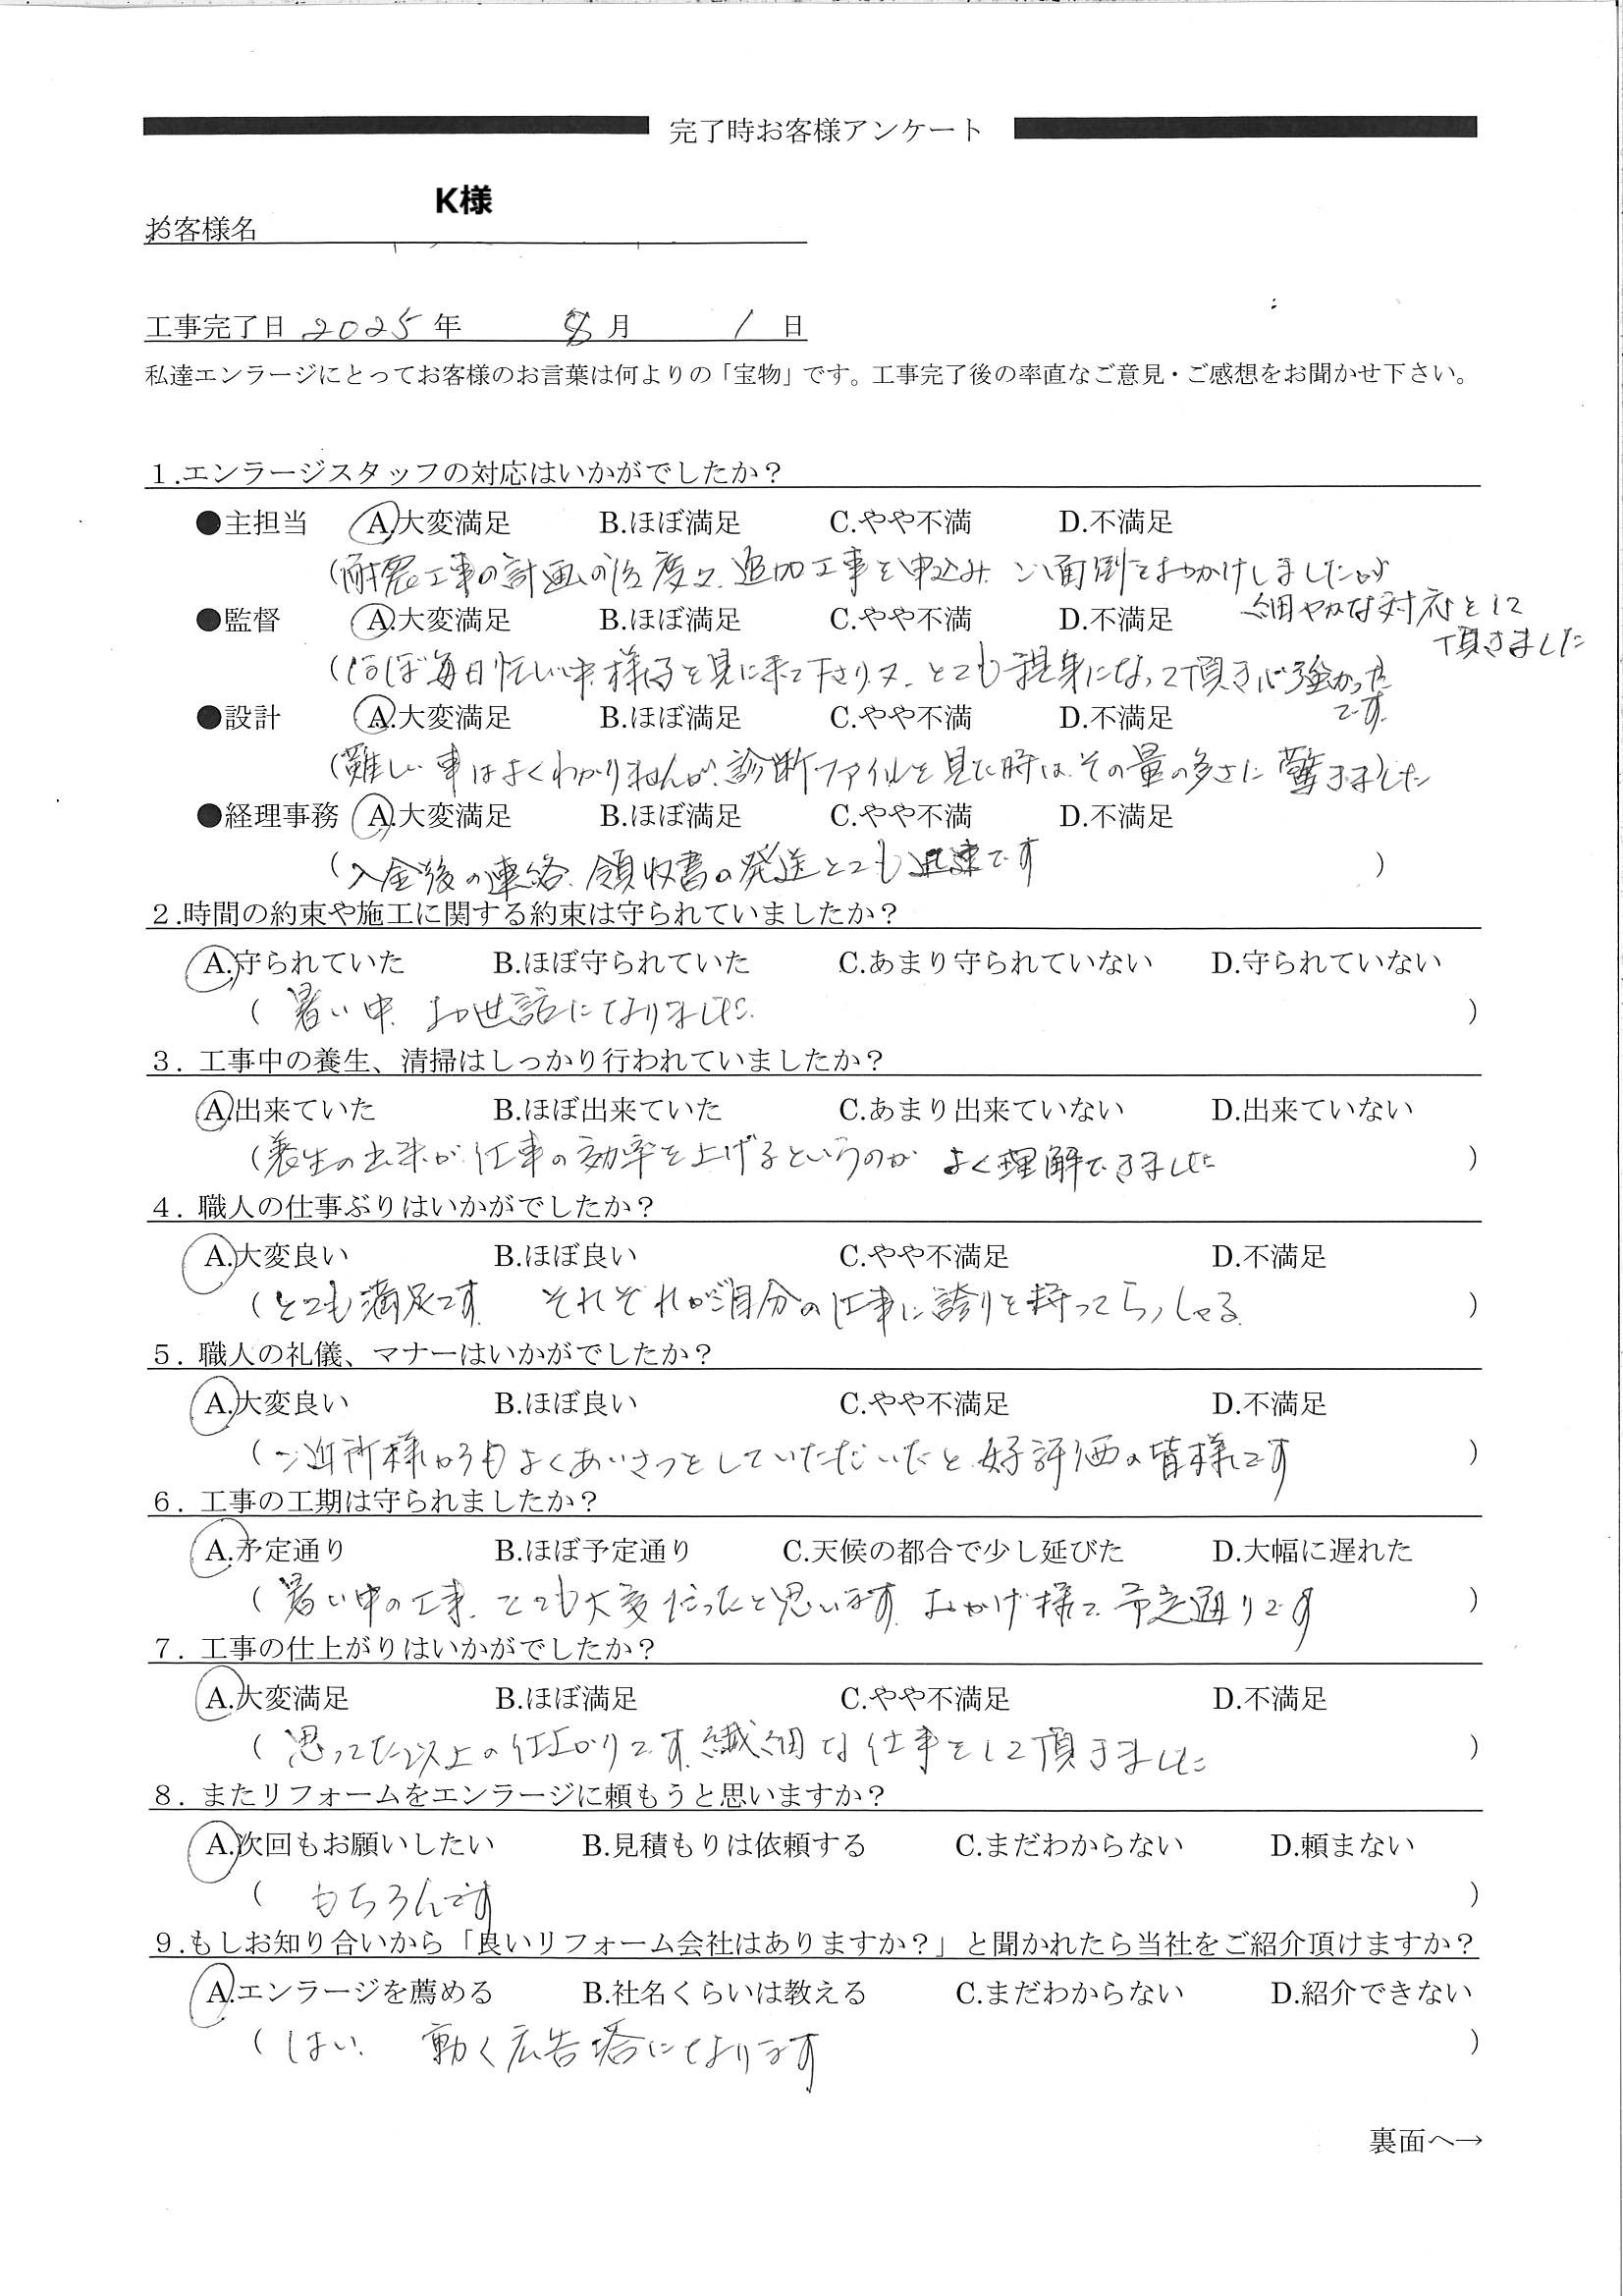 完了時お客様アンケート
K様
お客様名
工事完了日 2025 年 8 月 1 日
私達エンラージにとってお客様のお言葉は何よりの「宝物」です。工事完了後の率直なご意見・ご感想をお聞かせ下さい。
1.エンラージスタッフの対応はいかがでしたか？
●主担当 A.大変満足 B.ほぼ満足 C.やや不満 D.不満足
(耐震工事の計画の後 度々 追加工事を申込み ご面倒をおかけしましたが
細やかな対応をして
頂きました
●監督 A.大変満足 B.ほぼ満足 C.やや不満 D.不満足
(ほぼ毎日忙しい中、様子を見に来て下さり又、とても親身になって頂き心強かった
です。
●設計 A.大変満足 B.ほぼ満足 C.やや不満 D.不満足
(難しい事はよくわかりませんが、診断ファイルを見た時は、その量の多さに驚きました
●経理事務 A.大変満足 B.ほぼ満足 C.やや不満 D.不満足
(入金後の連絡、領収書の発送とても迅速です )
2.時間の約束や施工に関する約束は守られていましたか？
A.守られていた B.ほぼ守られていた C.あまり守られていない D.守られていない
( 暑い中、お世話になりました。 )
3. 工事中の養生、清掃はしっかり行われていましたか？
A.出来ていた B.ほぼ出来ていた C.あまり出来ていない D.出来ていない
(養生の出来が仕事の効率を上げるというのが よく理解できました )
4. 職人の仕事ぶりはいかがでしたか？
A.大変良い B.ほぼ良い C.やや不満足 D.不満足
(とても満足です。 それぞれが自分の仕事に誇りを持ってらっしゃる。 )
5. 職人の礼儀、マナーはいかがでしたか？
A.大変良い B.ほぼ良い C.やや不満足 D.不満足
(ご近所様からもよくあいさつをしていただいたと、好評価の皆様です )
6. 工事の工期は守られましたか？
A.予定通り B.ほぼ予定通り C.天候の都合で少し延びた D.大幅に遅れた
(暑い中の工事、とても大変だったと思います。おかげ様で予定通りです )
7. 工事の仕上がりはいかがでしたか？
A.大変満足 B.ほぼ満足 C.やや不満足 D.不満足
( 思ってた以上の仕上がりです。繊細な仕事をして頂きました )
8. またリフォームをエンラージに頼もうと思いますか？
A.次回もお願いしたい B.見積もりは依頼する C.まだわからない D.頼まない
( もちろんです )
9.もしお知り合いから「良いリフォーム会社はありますか？」と聞かれたら当社をご紹介頂けますか？
A.エンラージを薦める B.社名くらいは教える C.まだわからない D.紹介できない
(はい、 動く広告塔になります )
裏面へ→